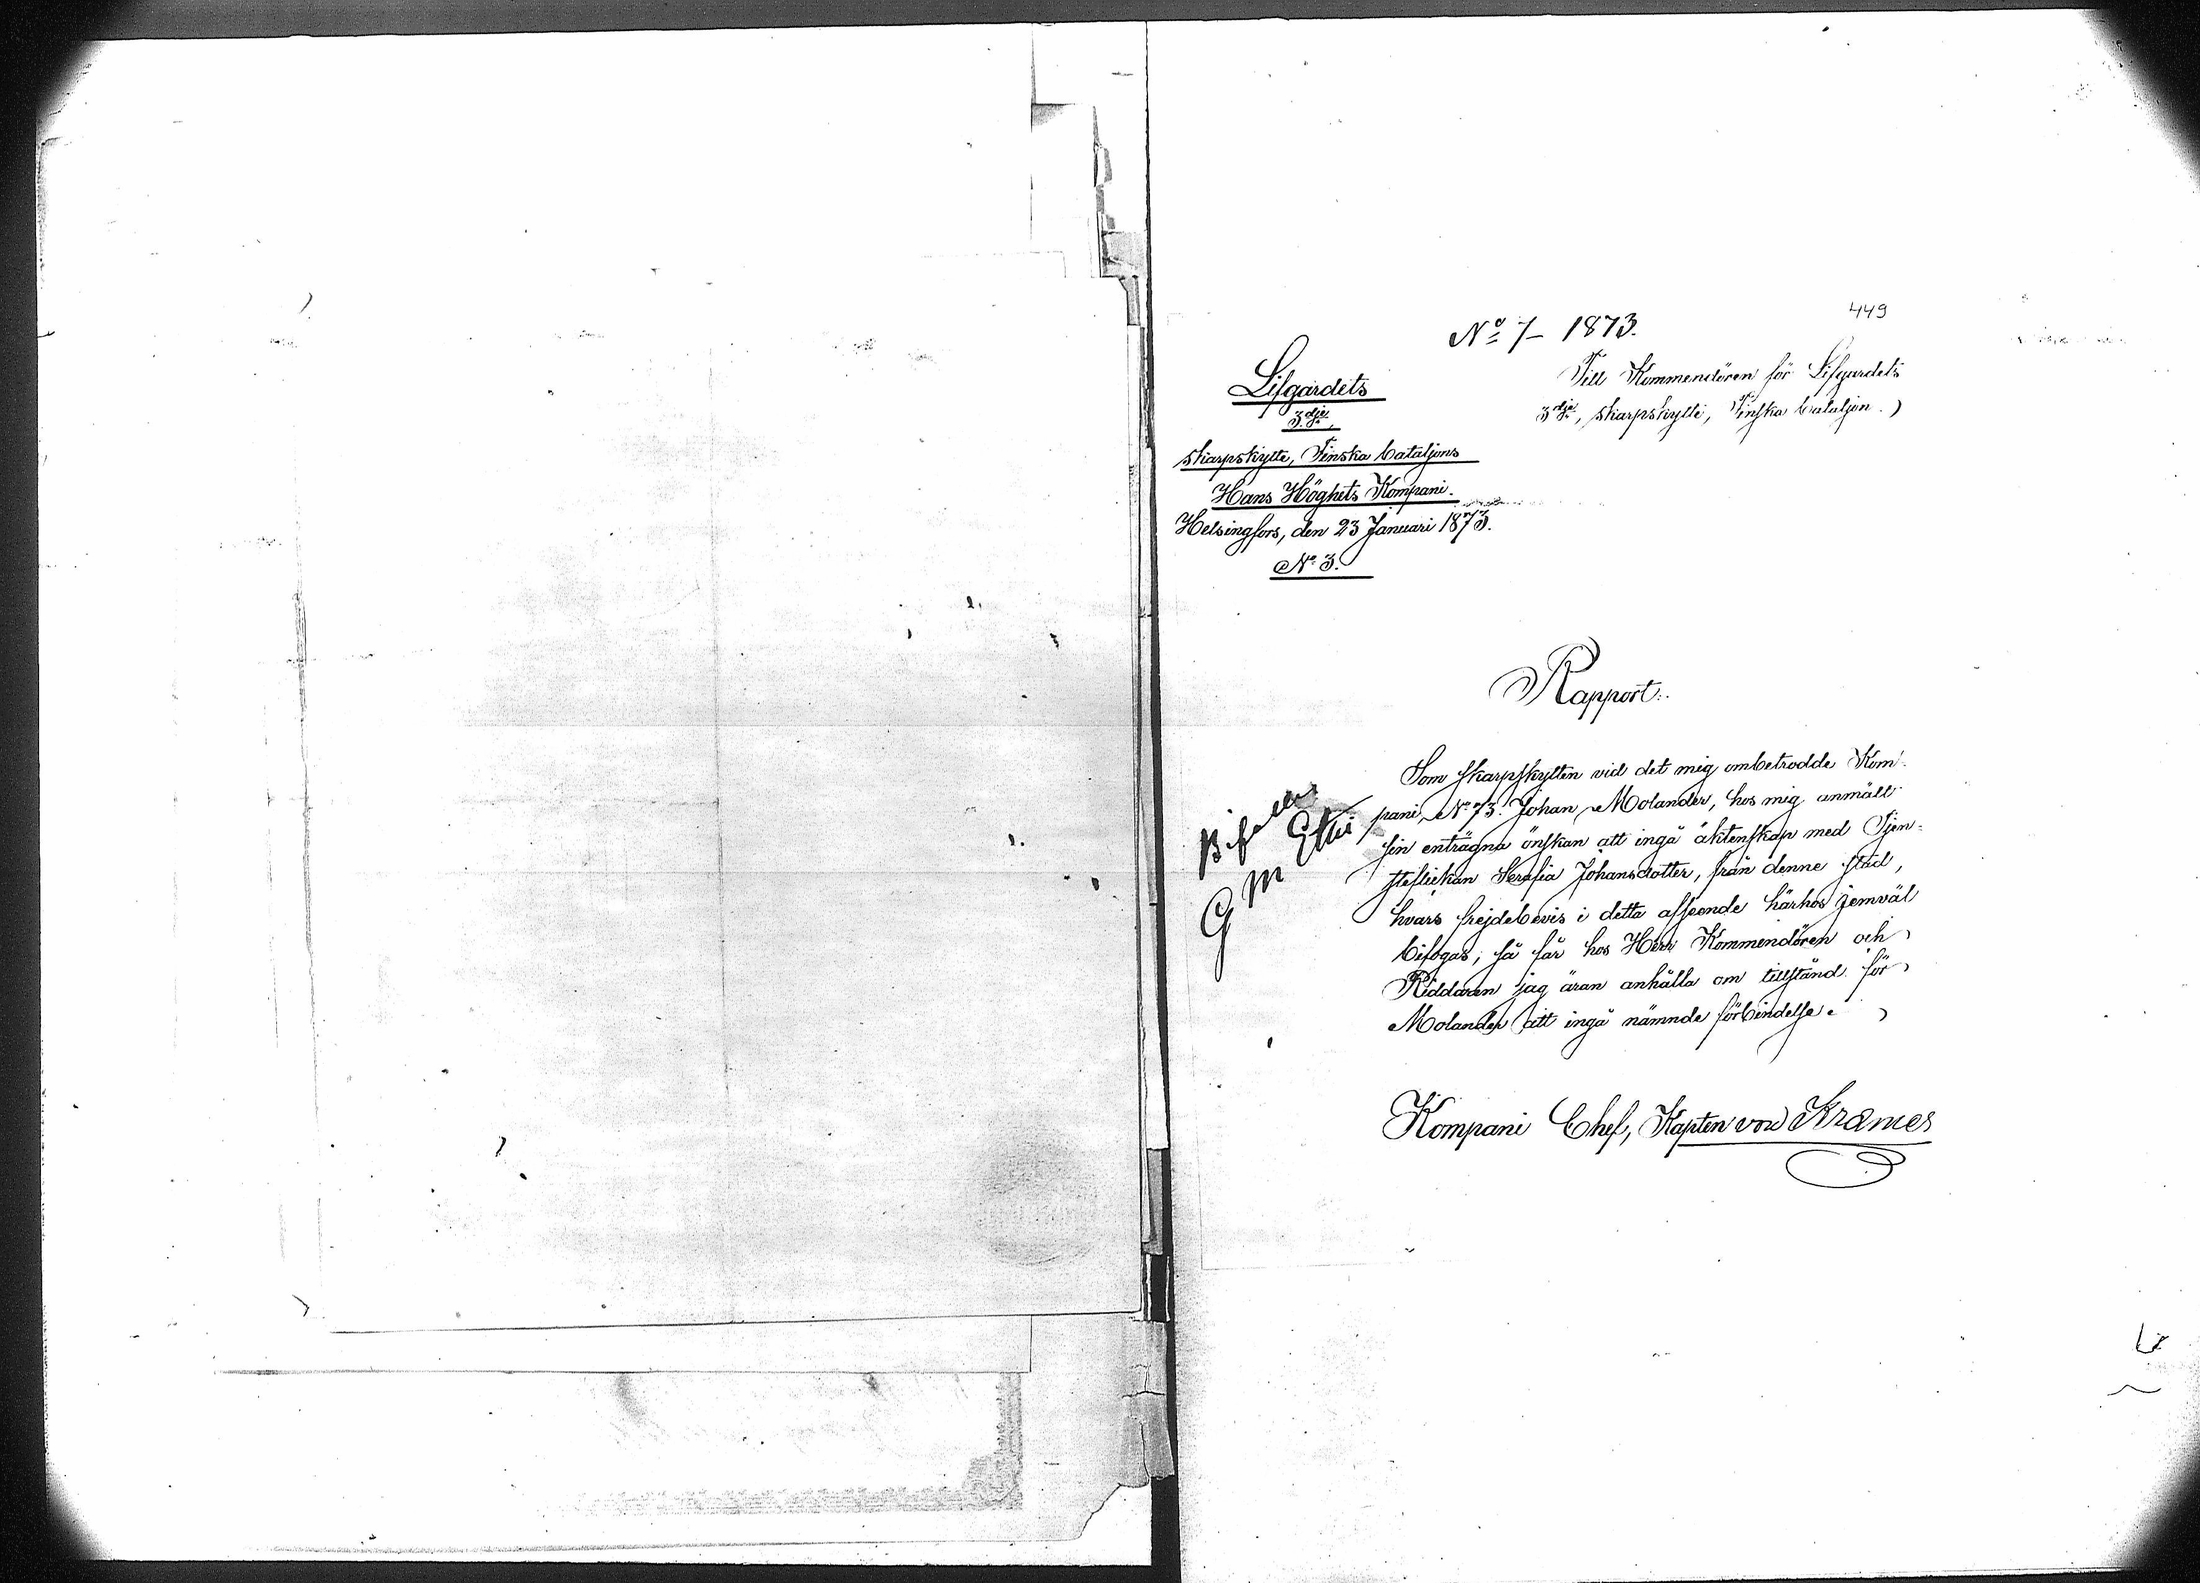 449
No 7 - 1873.
Lifgardets
3dje,
skarpskytte, Finska bataljons
Hans Höghets Kompani.
Helsingfors, den 23 Januari 1873.
No 3.
Till Kommendören för Lifgardets
3dje, skarpskytte, Finska bataljon.
Rapport.
Som skarpskytten vid det mig ombetrodde Kom-
pani, No 73. Johan Molander, hos mig anmält
sin enträgna önskan att ingå äktenskap med Tjen-
steflickan Serafia Johansdotter, från denne stad,
hvars frejdebevis i detta afseende härhos jemväl
bifogas, så får hos Herr Kommendören och
Riddaren jag äran anhålla om tillstånd för
Molander att ingå nämnde förbindelse.
Bifalles
G M
Kompani Chef, Kapten von Kræmer